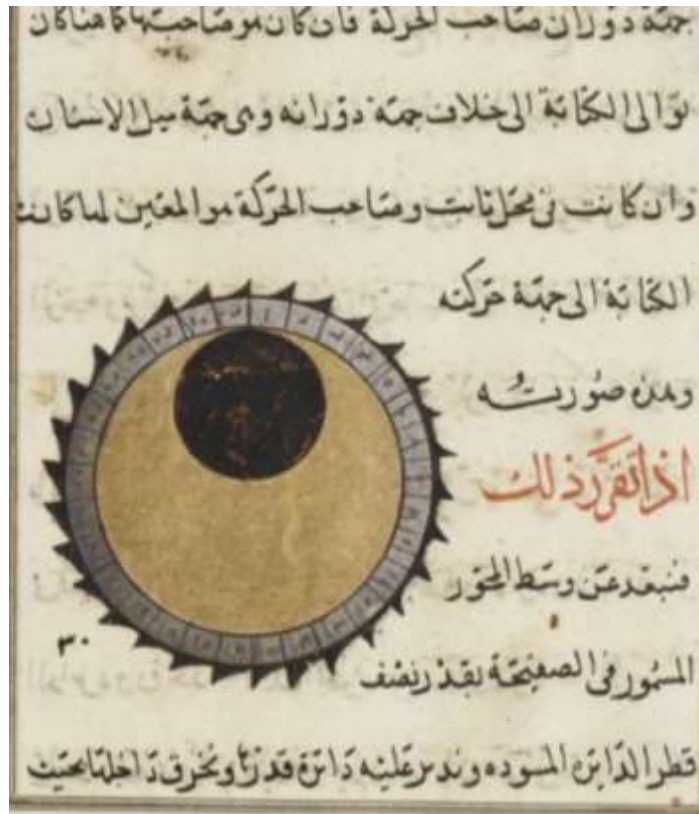 جهة دوران صاحب الحركة فان كان هو صاحبتها كما هنا كان
توالى الكتابة الى خلاف جهة دورانه وهى جهة ميل الاسنان
وان كانت فى محل ثابت وصاحب الحركة هو المعين لها كانت
الكتابة الى جهة حركته
وهذه صورته
اذا تقرر ذلك
فنبعد عن وسط المحور
٣٠
المسمور فى الصفيحة بقدر نصف
قطر الدائره المسوده وندير عليه دائرة قدرها ونخرق داخلها بحيث